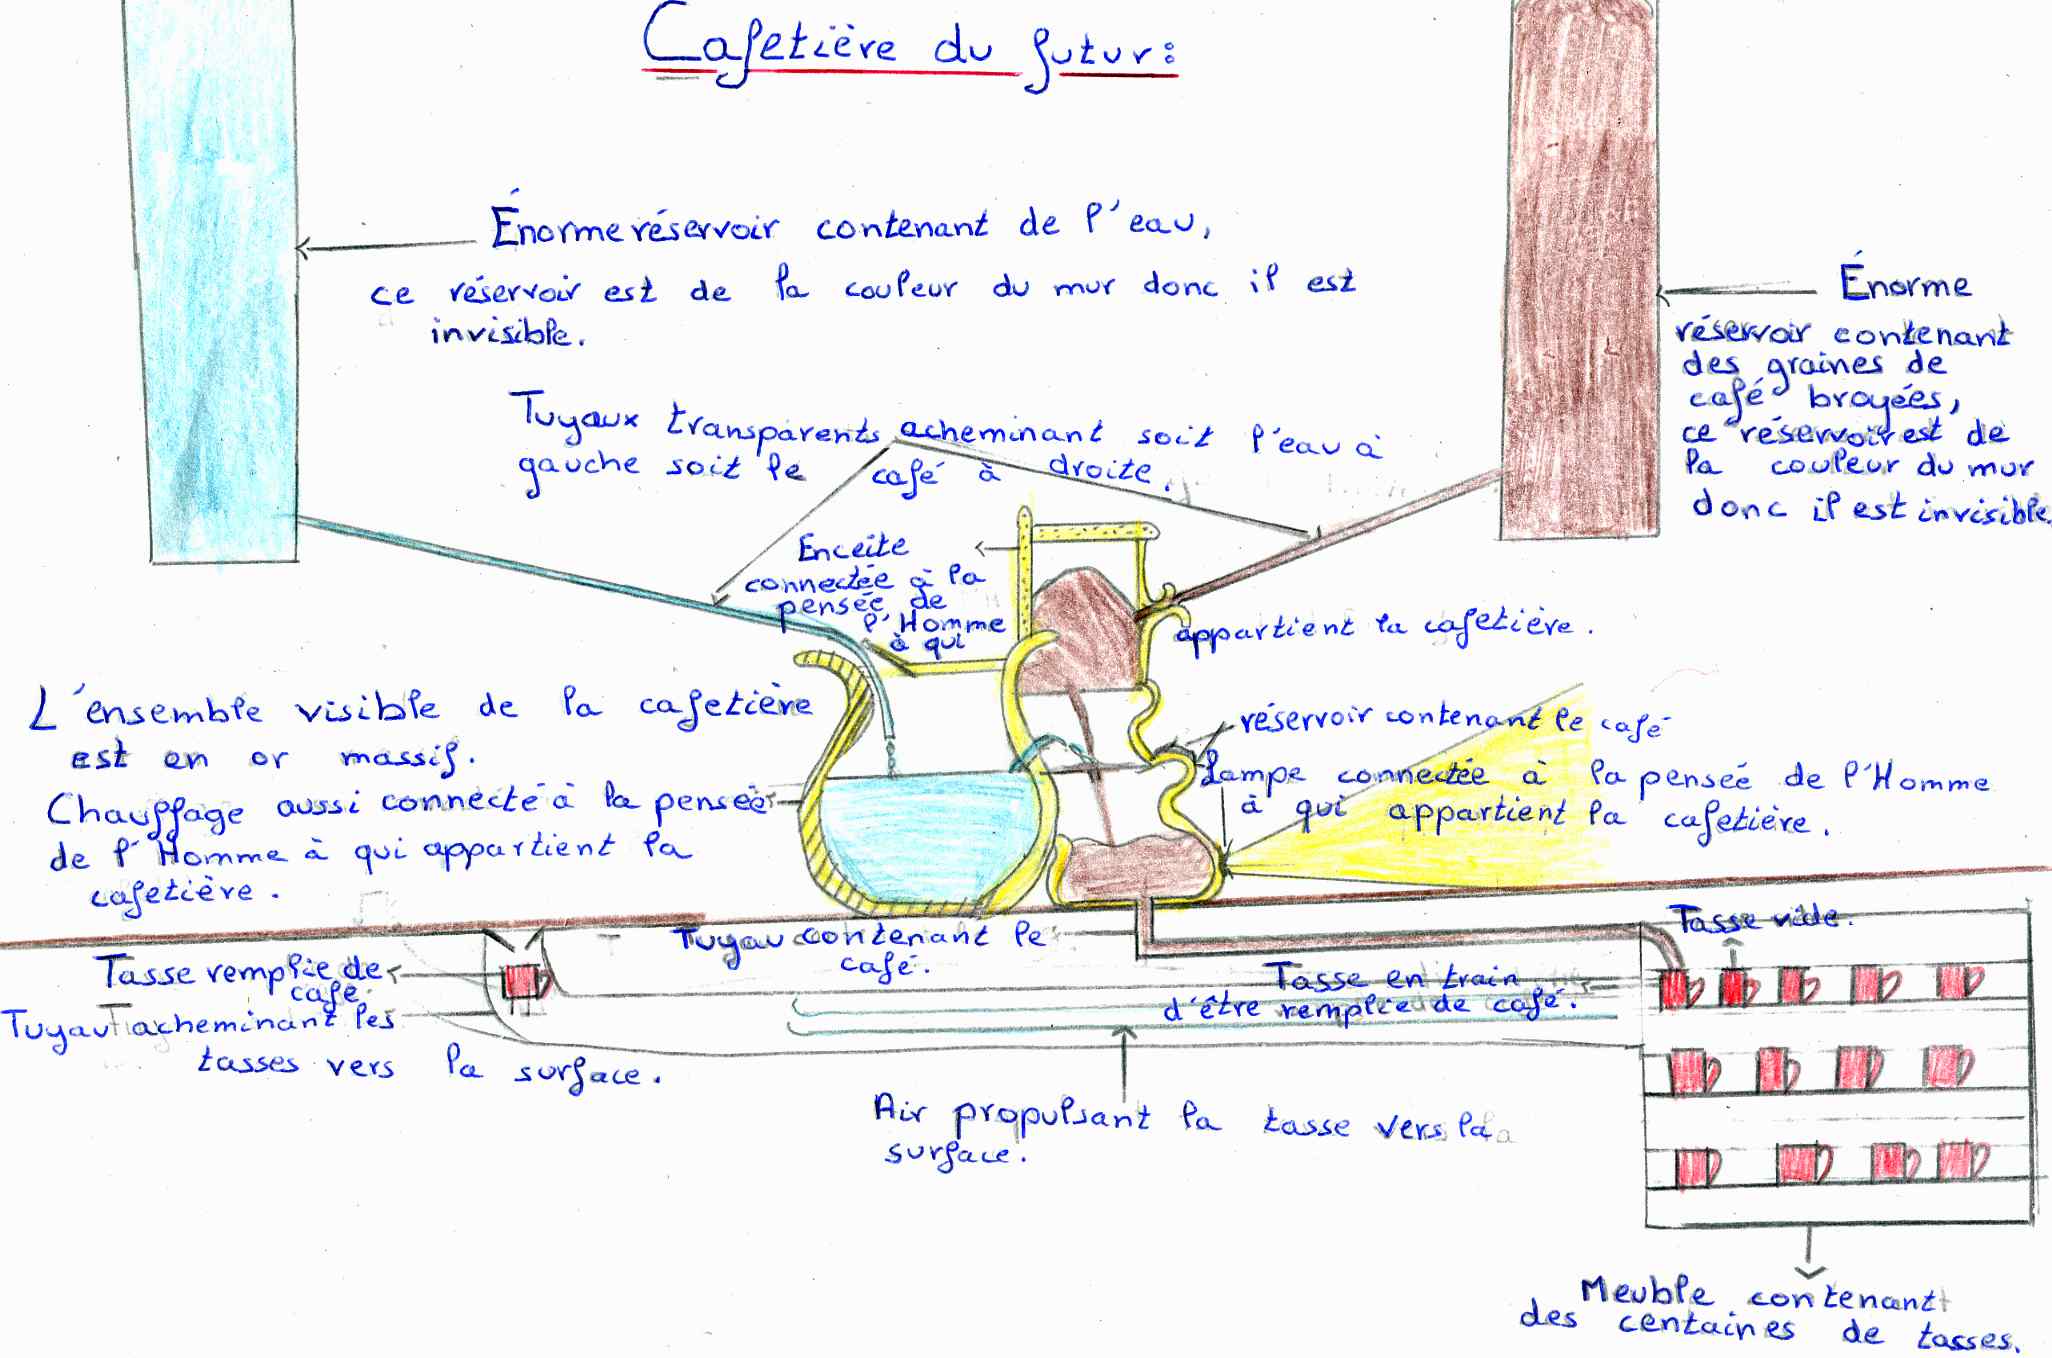 Cafetière du futur:
Énorme réservoir contenant de l'eau,
ce réservoir est de la couleur du mur donc il est
invisible.
Énorme
réservoir contenant
des graines de
café broyées,
ce réservoir est de
la couleur du mur
donc il est invisible.
Tuyaux transparents acheminant soit l'eau à
gauche soit le café à droite.
Enceite
connectée à la
pensée de
l'Homme
à qui
appartient la cafetière.
L'ensemble visible de la cafetière
est en or massif.
Chauffage aussi connecté à la pensée
de l'Homme à qui appartient la
cafetière.
réservoir contenant le café
Lampe connectée à la pensée de l'Homme
à qui appartient la cafetière.
Tasse vide.
Tuyau contenant le
café.
Tasse remplie de
café.
Tuyau acheminant les
tasses vers la surface.
Tasse en train
d'être remplie de café.
Air propulsant la tasse vers la
surface.
Meuble contenant
des centaines de tasses.